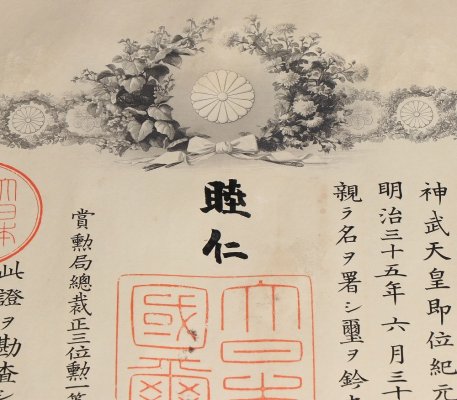 神武天皇即位紀元
明治三十五年六月三十
親ラ名ヲ署シ璽ヲ鈐
睦仁
大日本
國璽
賞勲局總裁正三位勲一等
此證ヲ勘査シ
大日本